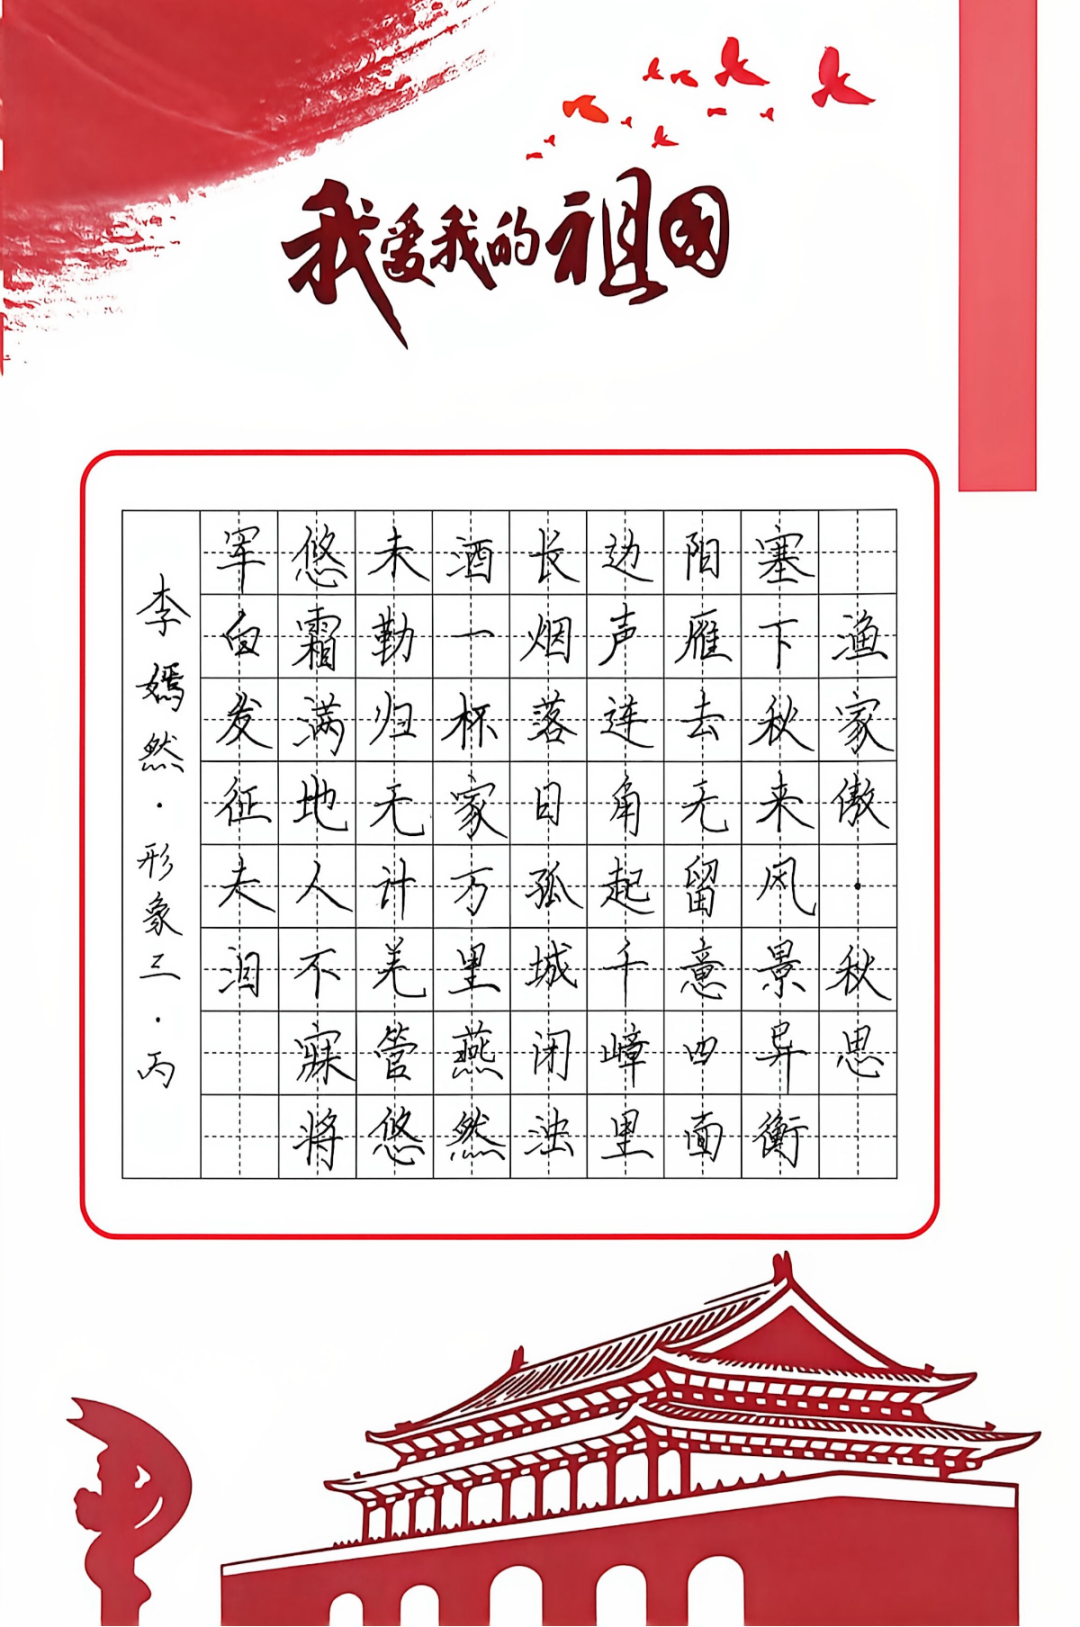 我爱我的祖国
渔家傲·秋思
塞下秋来风景异衡
阳雁去无留意四面
边声连角起千嶂里
长烟落日孤城闭浊
酒一杯家万里燕然
未勒归无计羌管悠
悠霜满地人不寐将
军白发征夫泪
李嫣然·形象三·丙